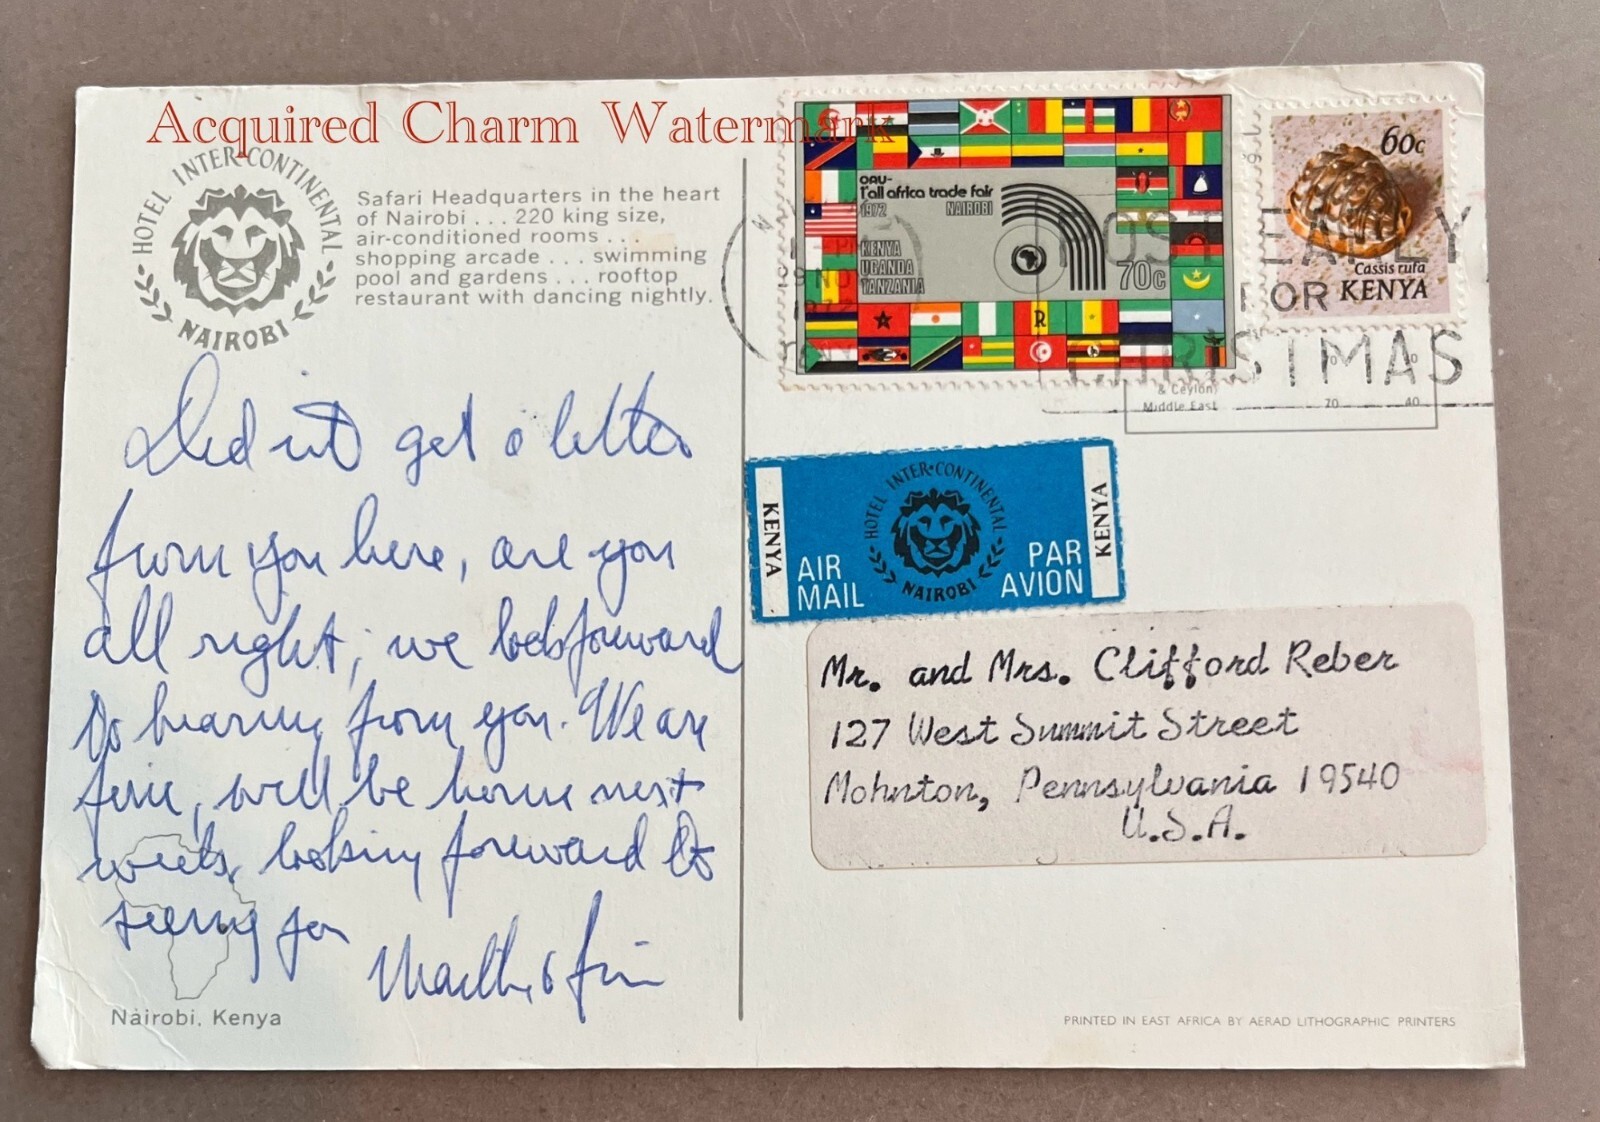 Acquired Charm Watermark
HOTEL INTER·CONTINENTAL
NAIROBI
Safari Headquarters in the heart
of Nairobi . . . 220 king size,
air-conditioned rooms . . .
shopping arcade . . . swimming
pool and gardens . . . rooftop
restaurant with dancing nightly.
Did nt get a letter
from you here, are you
all right, we look forward
to hearing from you. We are
fine, will be home next
week, looking forward to
seeing you
Nairobi, Kenya
OAU-
1st all africa trade fair
1972 NAIROBI
KENYA
UGANDA
TANZANIA
70c
R
60c
Cassis rufa
KENYA
19 NO
197
POST EARLY
FOR
CHRISTMAS
& Ceylon)
Middle East 70 40
KENYA
AIR
MAIL
HOTEL INTER·CONTINENTAL
NAIROBI
PAR
AVION
KENYA
Mr. and Mrs. Clifford Reber
127 West Summit Street
Mohnton, Pennsylvania 19540
U.S.A.
PRINTED IN EAST AFRICA BY AERAD LITHOGRAPHIC PRINTERS